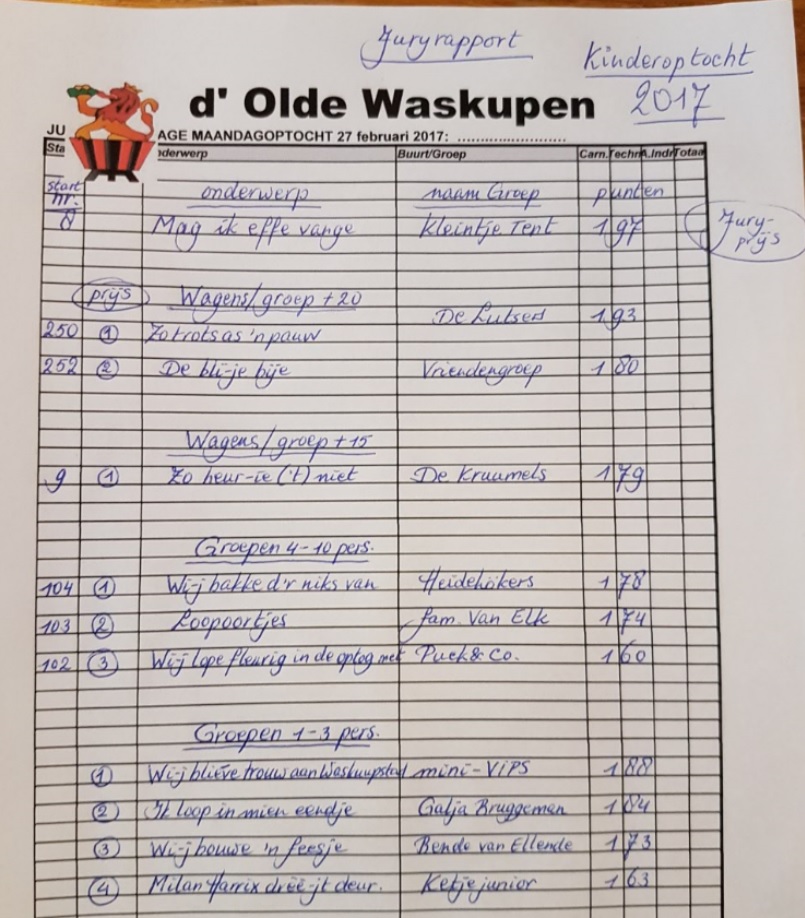 Juryrapport
Kinderoptocht
2017
d' Olde Waskupen
JU AGE MAANDAGOPTOCHT 27 februari 2017: ........................
Sta nderwerp Buurt/Groep Carn. Techn A.Indr Totaa
start nr. onderwerp naam Groep punten
8 Mag ik effe vange Kleintje Tent 197 Jury-prijs
prijs Wagens/groep +20
250 1 Zo trots as 'n pauw De Lutsers 193
252 2 De bli-je bije Vriendengroep 180
Wagens/groep +15
9 1 Zo heur-ie ('t) niet De Kruumels 179
Groepen 4-10 pers.
104 1 Wi-j bakke d'r niks van Heidehökers 178
103 2 Loopoortjes fam. Van Elk 174
102 3 Wi-j lope fleurig in de optog met Puck & Co. 160
Groepen 1-3 pers.
1 Wi-j blieve trouw aan Waskuupstad mini-VIPS 188
2 Ik loop in mien eendje Galja Bruggeman 184
3 Wi-j bouwe 'n feesje Bende van Ellende 173
4 Milan Harrix dreë-jt deur. Ketje junior 163